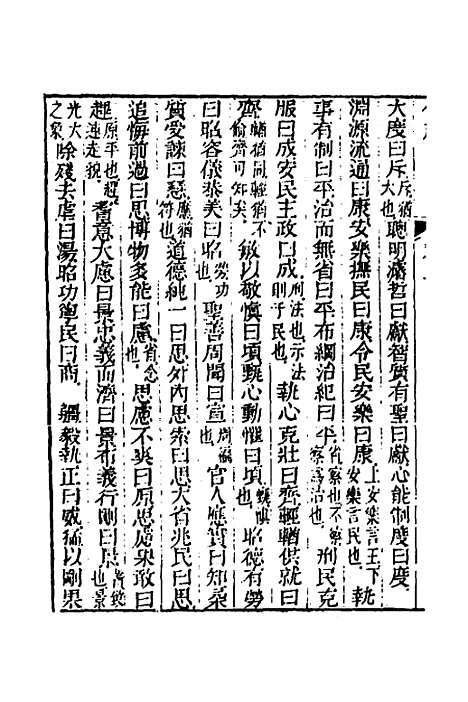 大度曰斥斥猶大也聰明叡哲曰獻智質有聖曰獻心能制度曰度
淵源流通曰康安樂撫民曰康令民安樂曰康上安樂言王下安樂言民也執
事有制曰平治而無省曰平布綱治紀曰平省察也不察察爲治也刑民克
服曰成安民主政曰成刑法也示法則于民也執心克壯曰齊輕輶供就曰
齊輶猶輕輶不偷齊可知矣敏以敬慎曰頃甄心動懼曰頃甄慎也昭德有勞
曰昭容儀恭美曰昭勞功也聖善周聞曰宣周徧也官人應實曰知柔
質受諫曰慧應猶符也道德純一曰思外內思索曰思大省兆民曰思
追悔前過曰思博物多能曰慮省念也思慮不爽曰原思慮果敢曰
趕原平也趕速走貌耆意大慮曰景忠義而濟曰景布義行剛曰景耆彊也景
光大之象除殘去虐曰湯昭功寧民曰商彊毅執正曰威猛以剛果